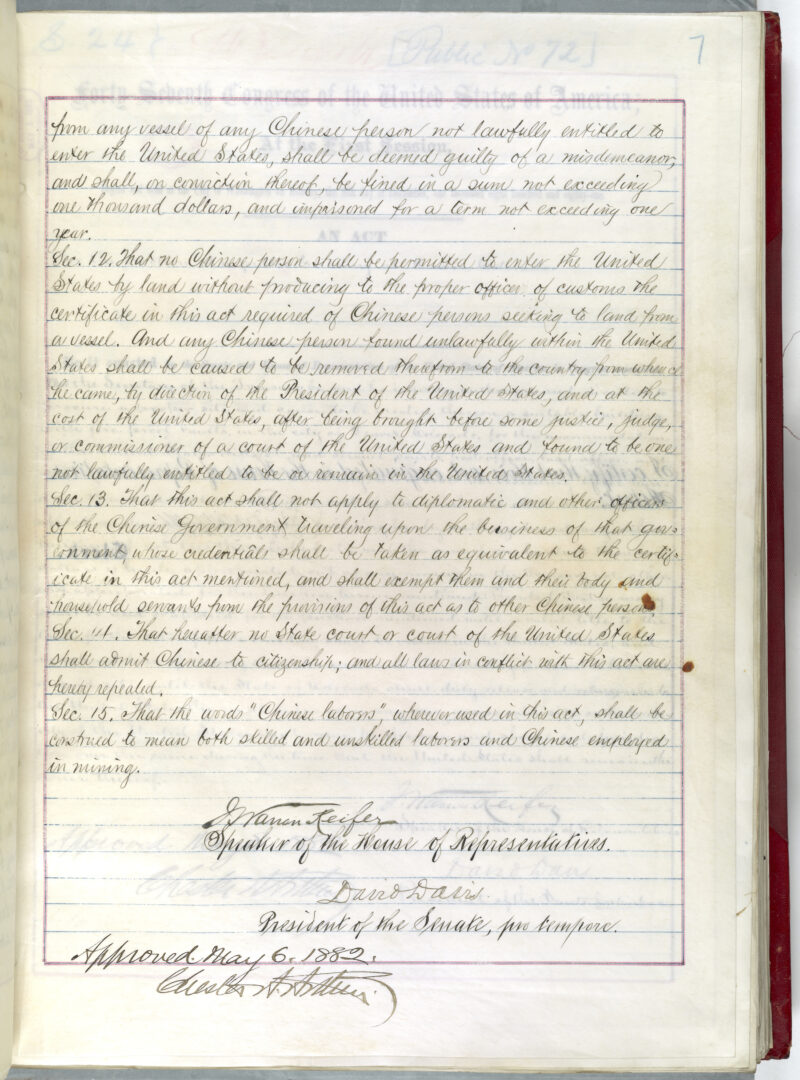 7
[Public No 72]
Forty Seventh Congress of the United States of America;
from any vessel of any Chinese person not lawfully entitled to
enter the United States, shall be deemed guilty of a misdemeanor,
and shall, on conviction thereof, be fined in a sum not exceeding
one thousand dollars, and imprisoned for a term not exceeding one
year.
AN ACT
Sec. 12. That no Chinese person shall be permitted to enter the United
States by land without producing to the proper officer of customs the
certificate in this act required of Chinese persons seeking to land from
a vessel. And any Chinese person found unlawfully within the United
States shall be caused to be removed therefrom to the country from whence
he came, by direction of the President of the United States, and at the
cost of the United States, after being brought before some justice, judge,
or commissioner of a court of the United States and found to be one
not lawfully entitled to be or remain in the United States.
Sec. 13. That this act shall not apply to diplomatic and other officers
of the Chinese Government traveling upon the business of that gov-
ernment, whose credentials shall be taken as equivalent to the certif-
icate in this act mentioned, and shall exempt them and their body and
household servants from the provisions of this act as to other Chinese persons.
Sec. 14. That hereafter no State court or court of the United States
shall admit Chinese to citizenship; and all laws in conflict with this act are
hereby repealed.
Sec. 15. That the words "Chinese laborers", wherever used in this act, shall be
construed to mean both skilled and unskilled laborers and Chinese employed
in mining.
J. Warren Keifer
Speaker of the House of Representatives.
David Davis
President of the Senate, pro tempore.
Approved May 6. 1882.
Chester A. Arthur.